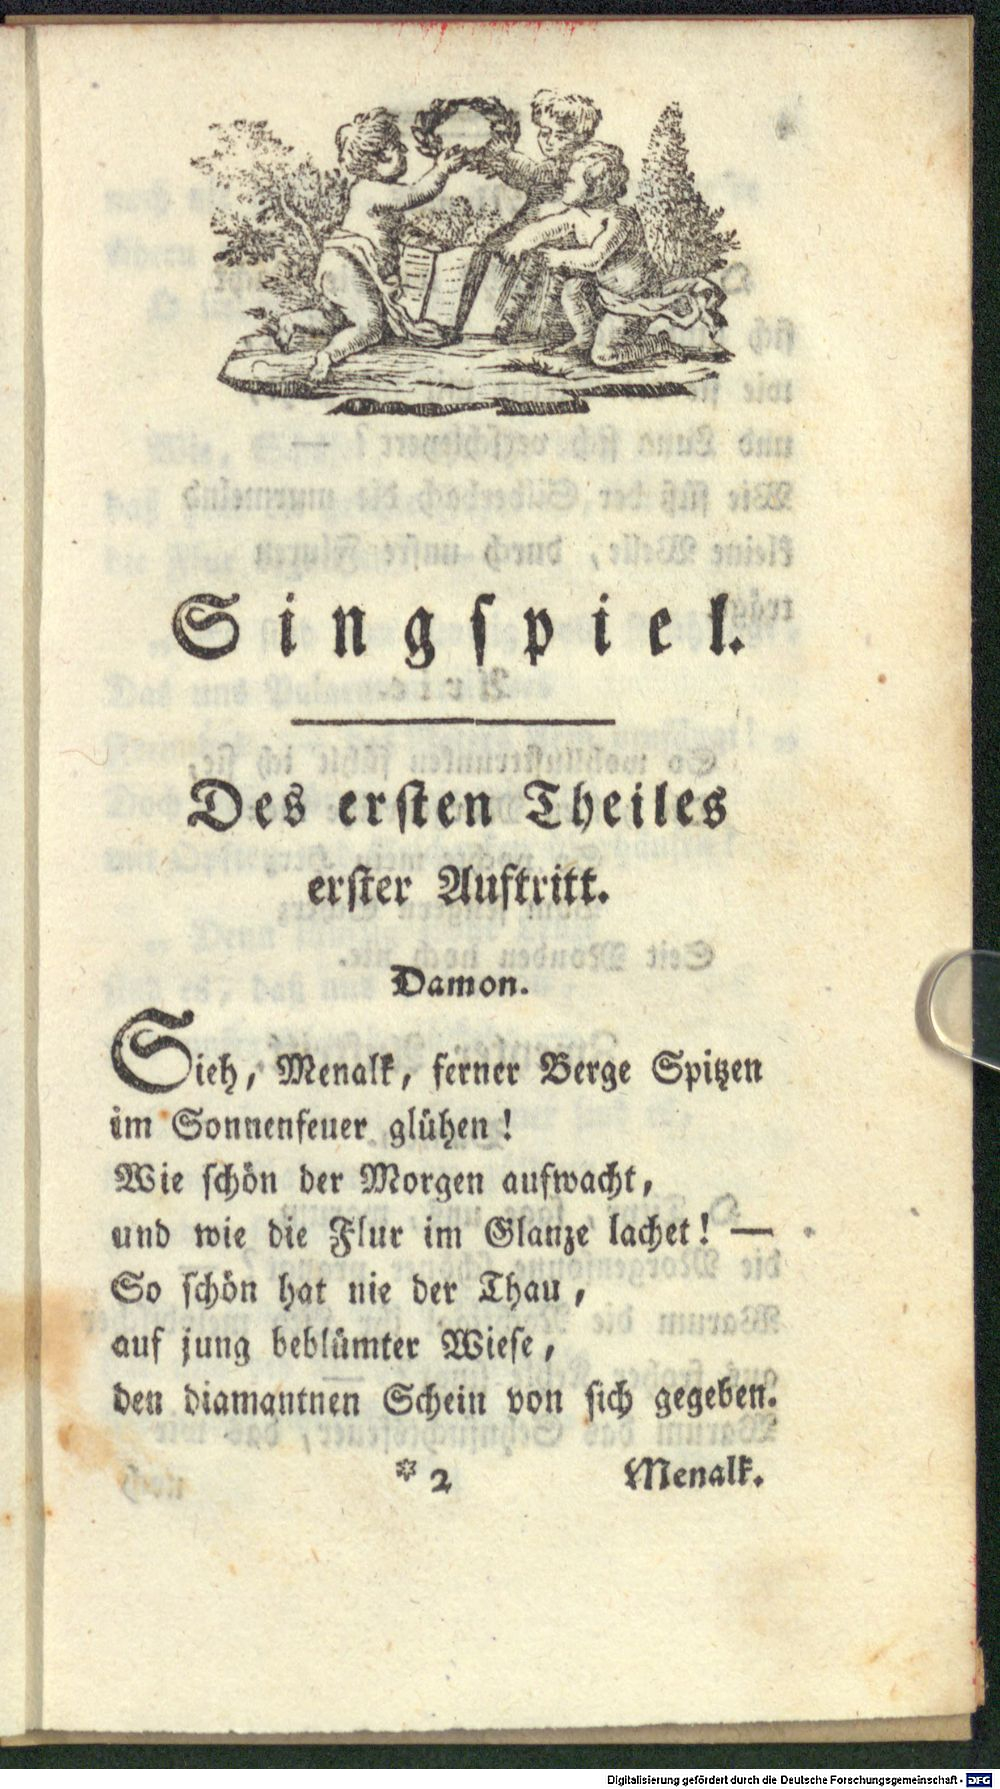 Singspiel.
Des ersten Theiles
erster Auftritt.
Damon.
Sieh, Menalk, ferner Berge Spitzen
im Sonnenfeuer glühen!
Wie schön der Morgen aufwacht,
und wie die Flur im Glanze lachet! —
So schön hat nie der Thau,
auf jung beblümter Wiese,
den diamantnen Schein von sich gegeben.
* 2 Menalk.
Digitalisierung gefördert durch die Deutsche Forschungsgemeinschaft - DFG